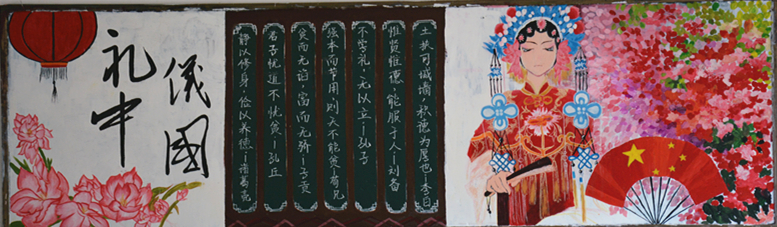 礼儀
中國
土扶可城墙，积德为厚也—李白
惟贤惟德，能服于人—刘备
不学礼，无以立—孔子
强本而节用，则天不能贫—荀
贫而无谄，富而无骄—子贡
君子忧道不忧贫—孔丘
静以修身，俭以养德—诸葛亮